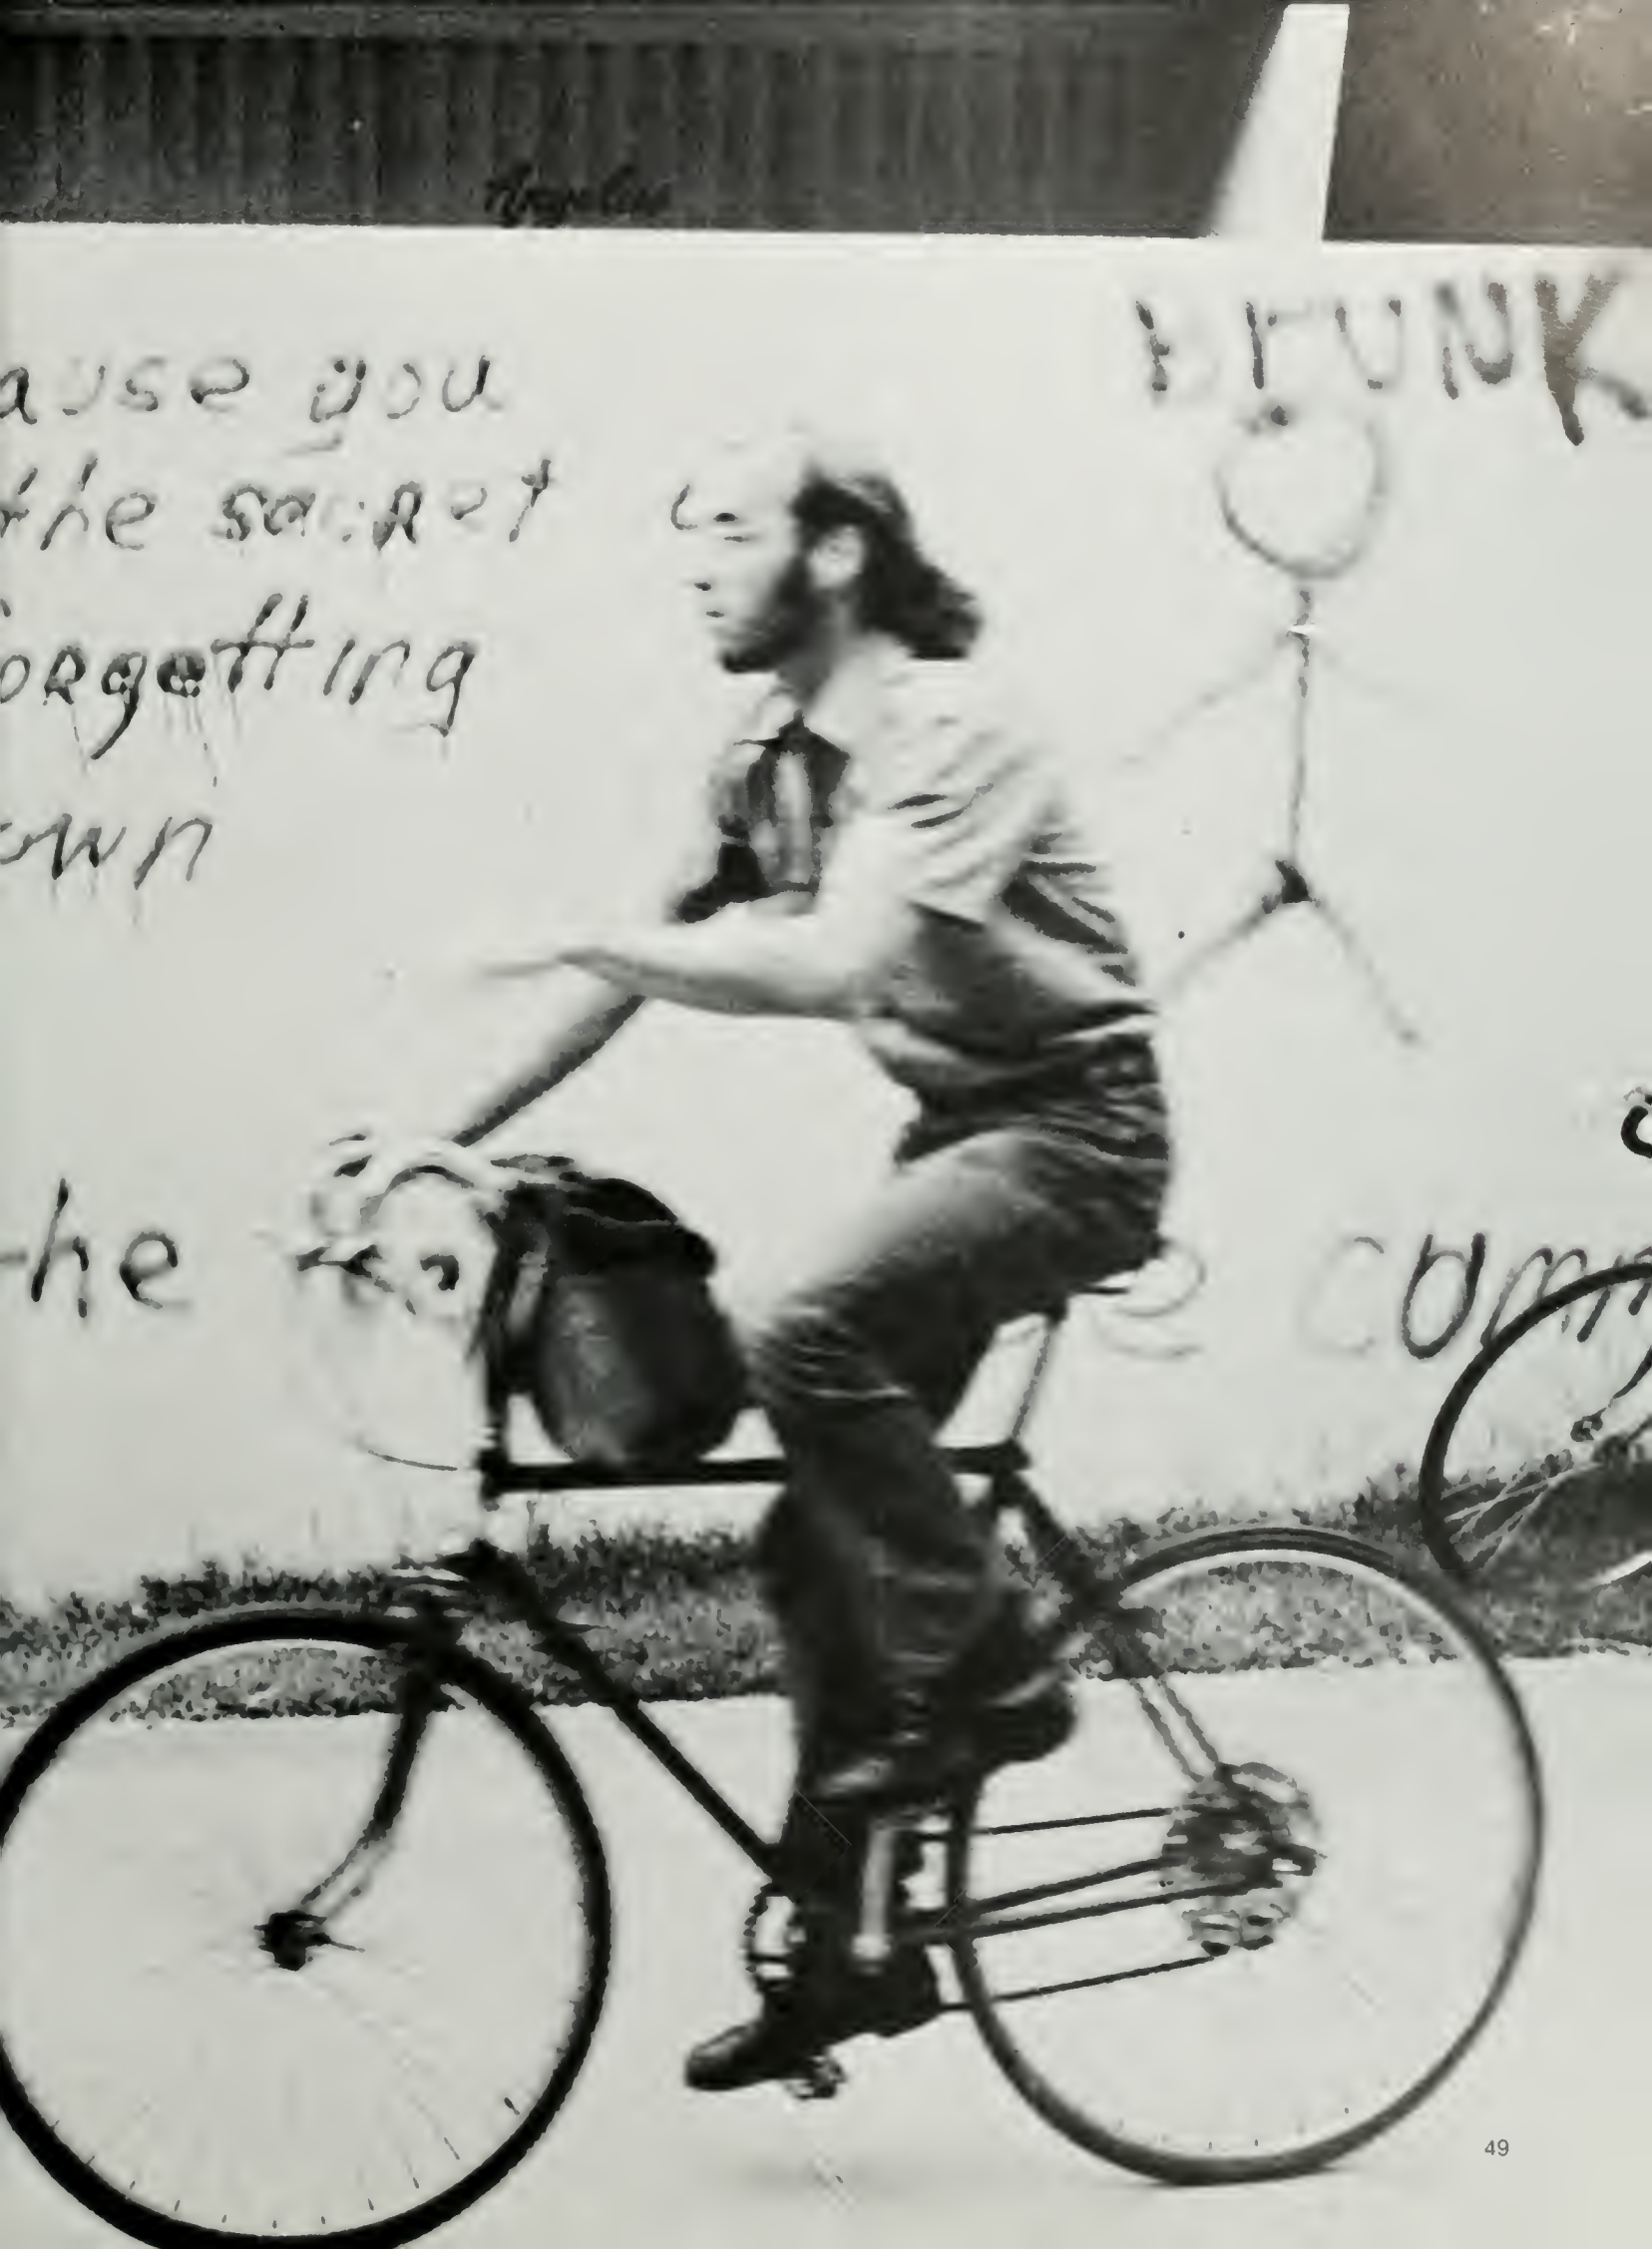 DRUNK
ause you
the sacRet
forgetting
own
the
comm
49